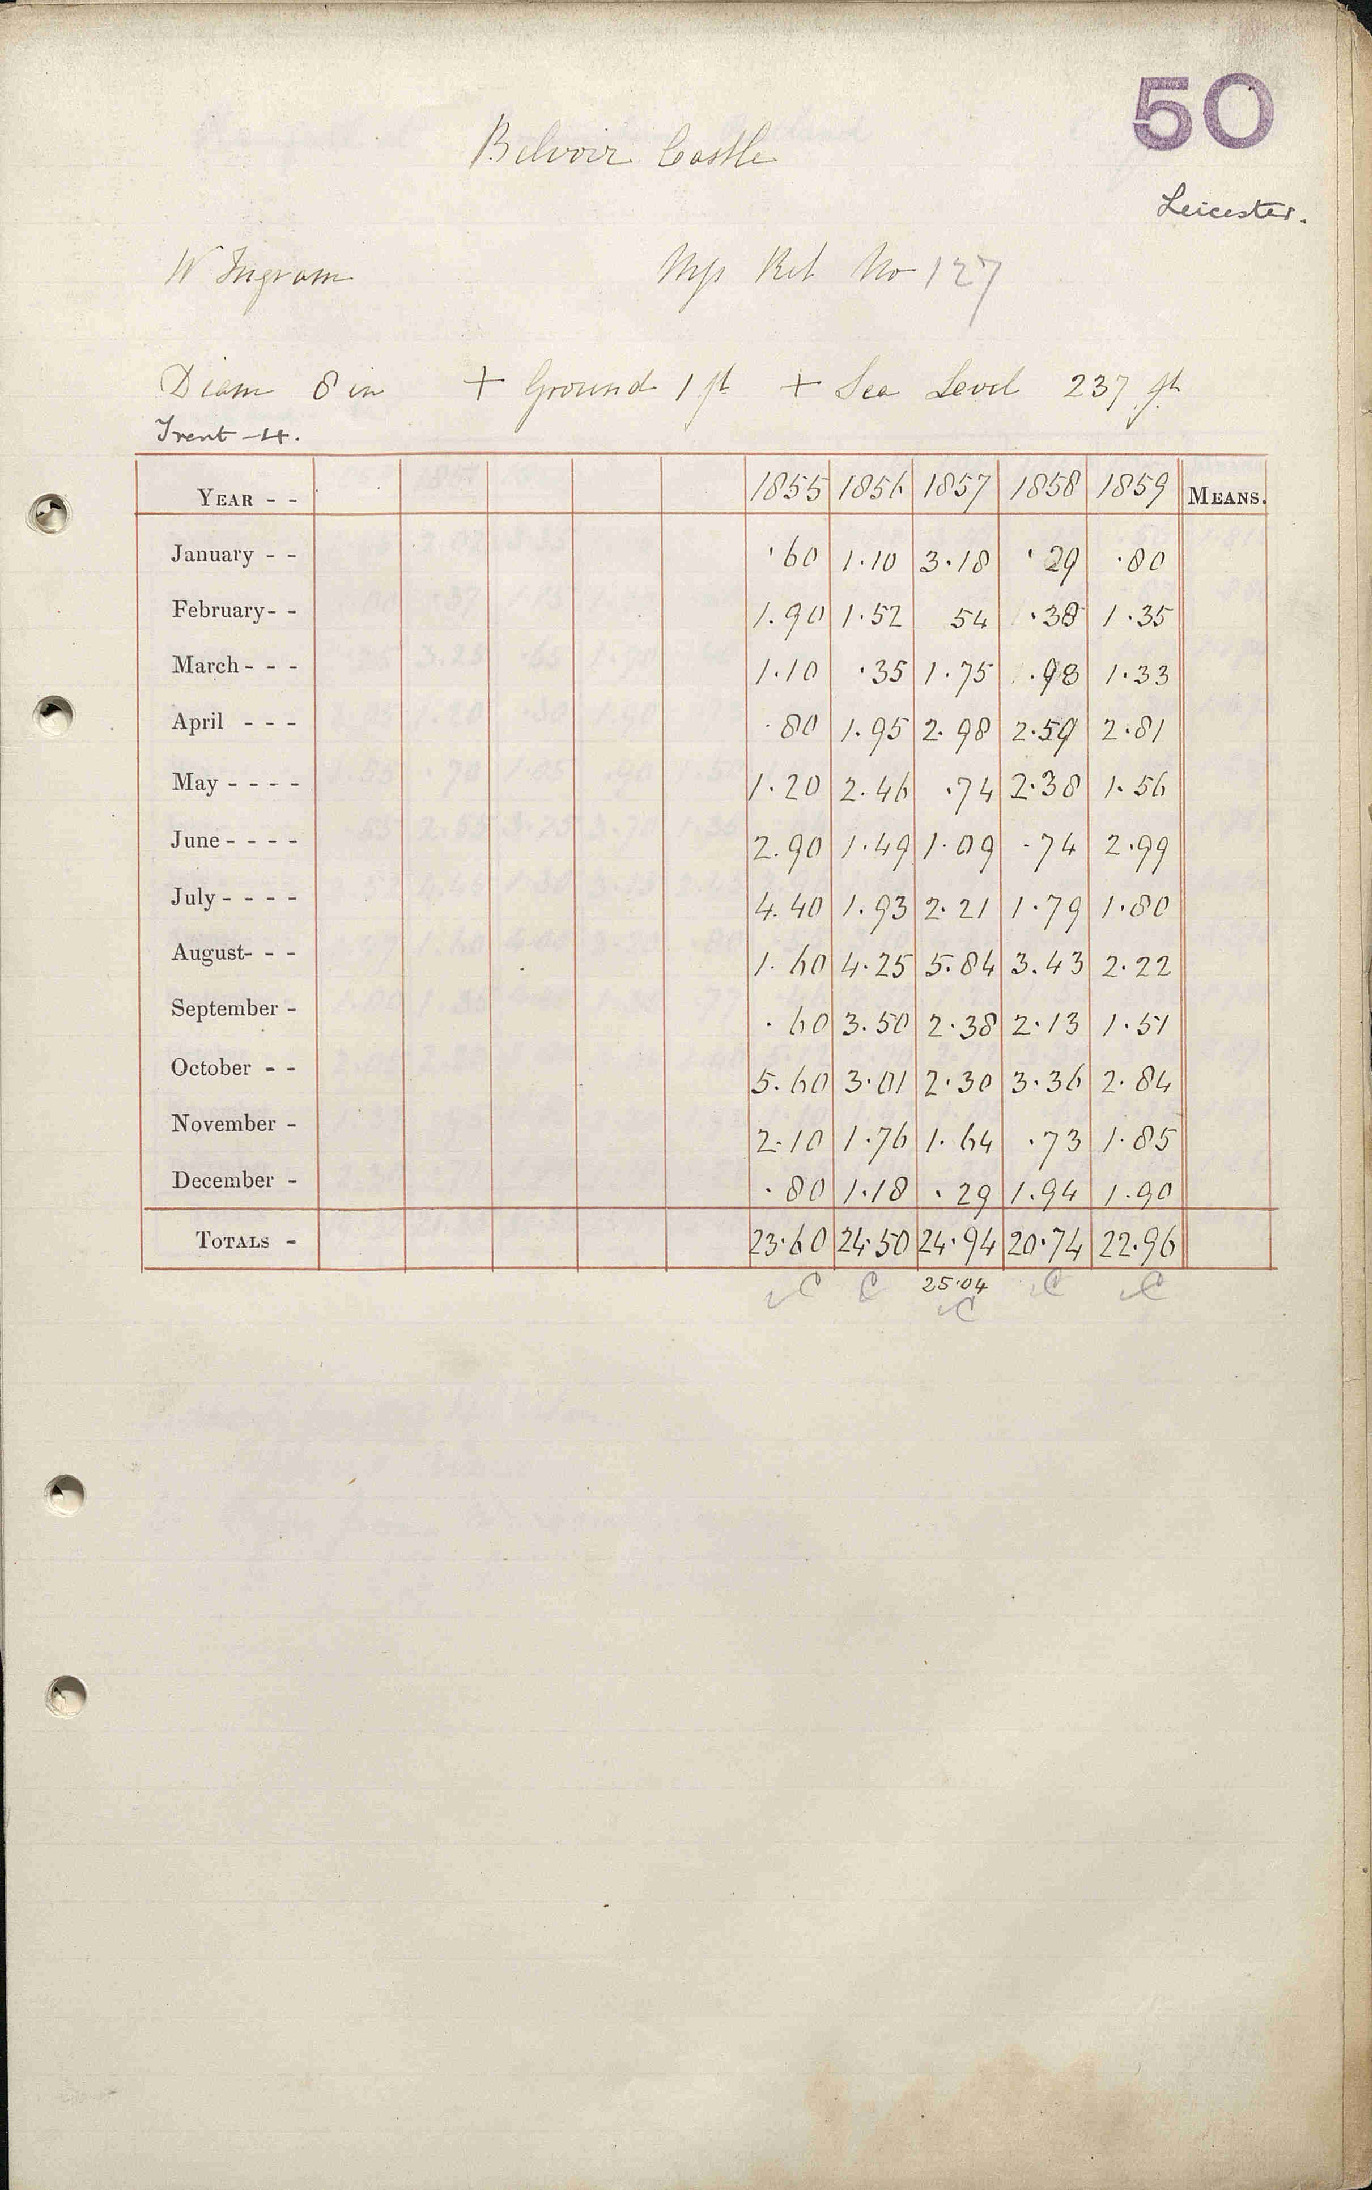 50
Belvoir Castle
Leicester.
W Ingram Mys Ret No 127
Diam 8 in + Ground 1 ft + Sea Level 237 ft
Trent 4.
YEAR - - 1855 1856 1857 1858 1859 MEANS.
January - - .60 1.10 3.18 .29 .80
February - - 1.90 1.52 54 .38 1.35
March - - - 1.10 .35 1.75 .98 1.33
April - - - .80 1.95 2.98 2.59 2.81
May - - - - 1.20 2.46 .74 2.38 1.56
June - - - - 2.90 1.49 1.09 .74 2.99
July - - - - 4.40 1.93 2.21 1.79 1.80
August - - - 1.60 4.25 5.84 3.43 2.22
September - .60 3.50 2.38 2.13 1.51
October - - 5.60 3.01 2.30 3.36 2.84
November - 2.10 1.76 1.64 .73 1.85
December - .80 1.18 .29 1.94 1.90
TOTALS - 23.60 24.50 24.94 20.74 22.96
C C 25.04 C C
C